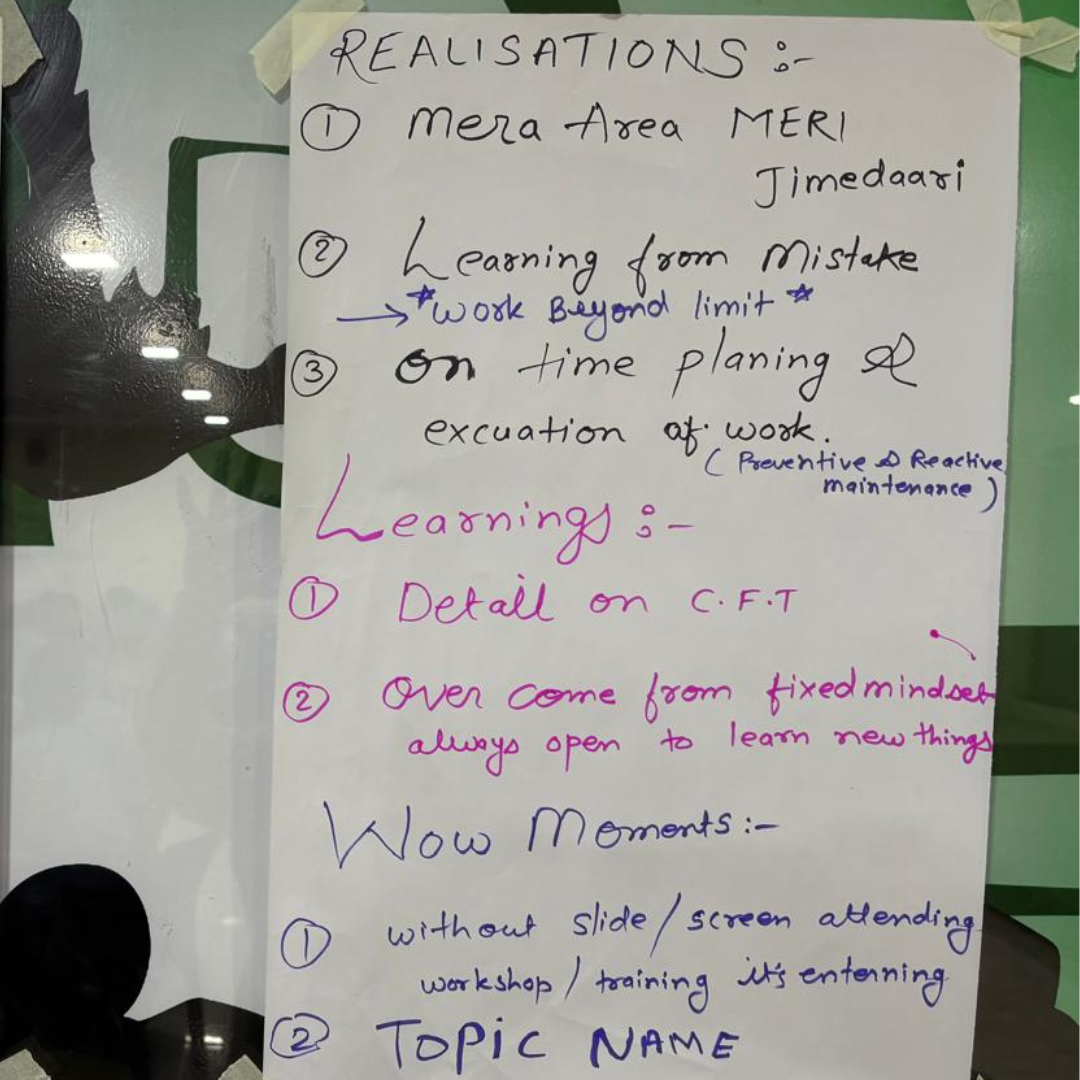 REALISATIONS :-
① Mera Area MERI
Jimedaari
② Learning from Mistake
→ *Work Beyond limit*
③ on time planing &
excuation of work.
( Preventive & Reactive
maintenance )
Learnings :-
① Detail on C.F.T
② Over come from fixed mindset
always open to learn new things
Wow Moments :-
① without slide / screen attending
workshop / training it's enterning
② TOPIC NAME